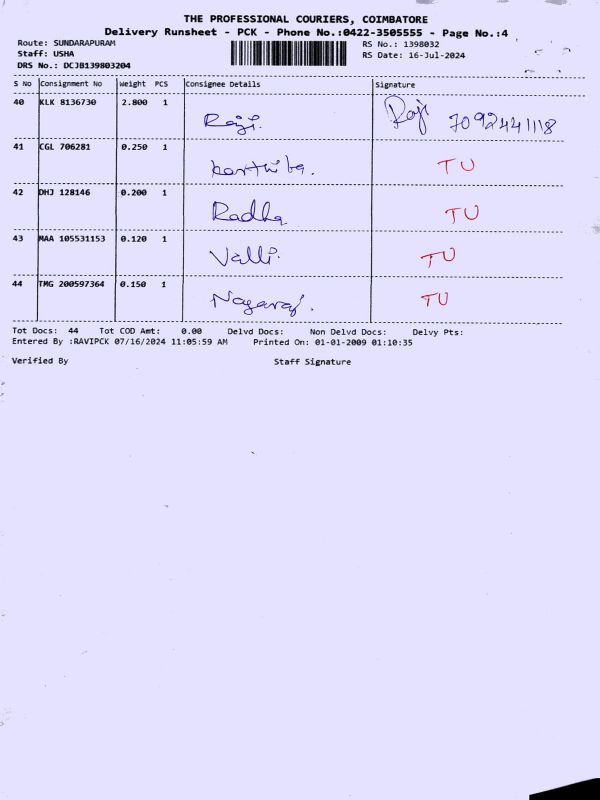 THE PROFESSIONAL COURIERS, COIMBATORE
Delivery Runsheet - PCK - Phone No.:0422-3505555 - Page No.:4
Route: SUNDARAPURAM RS No.: 1398032
Staff: USHA RS Date: 16-Jul-2024
DRS No.: DCJB139803204
S No Consignment No Weight PCS Consignee Details Signature
40 KLK 8136730 2.800 1
Raji. Raji 7092441118
41 CGL 706281 0.250 1
karthika. TU
42 DHJ 128146 0.200 1
Radha TU
43 MAA 105531153 0.120 1
Valli. TU
44 TMG 200597364 0.150 1
Nagaraj. TU
Tot Docs: 44 Tot COD Amt: 0.00 Delvd Docs: Non Delvd Docs: Delvy Pts:
Entered By :RAVIPCK 07/16/2024 11:05:59 AM Printed On: 01-01-2009 01:10:35
Verified By Staff Signature